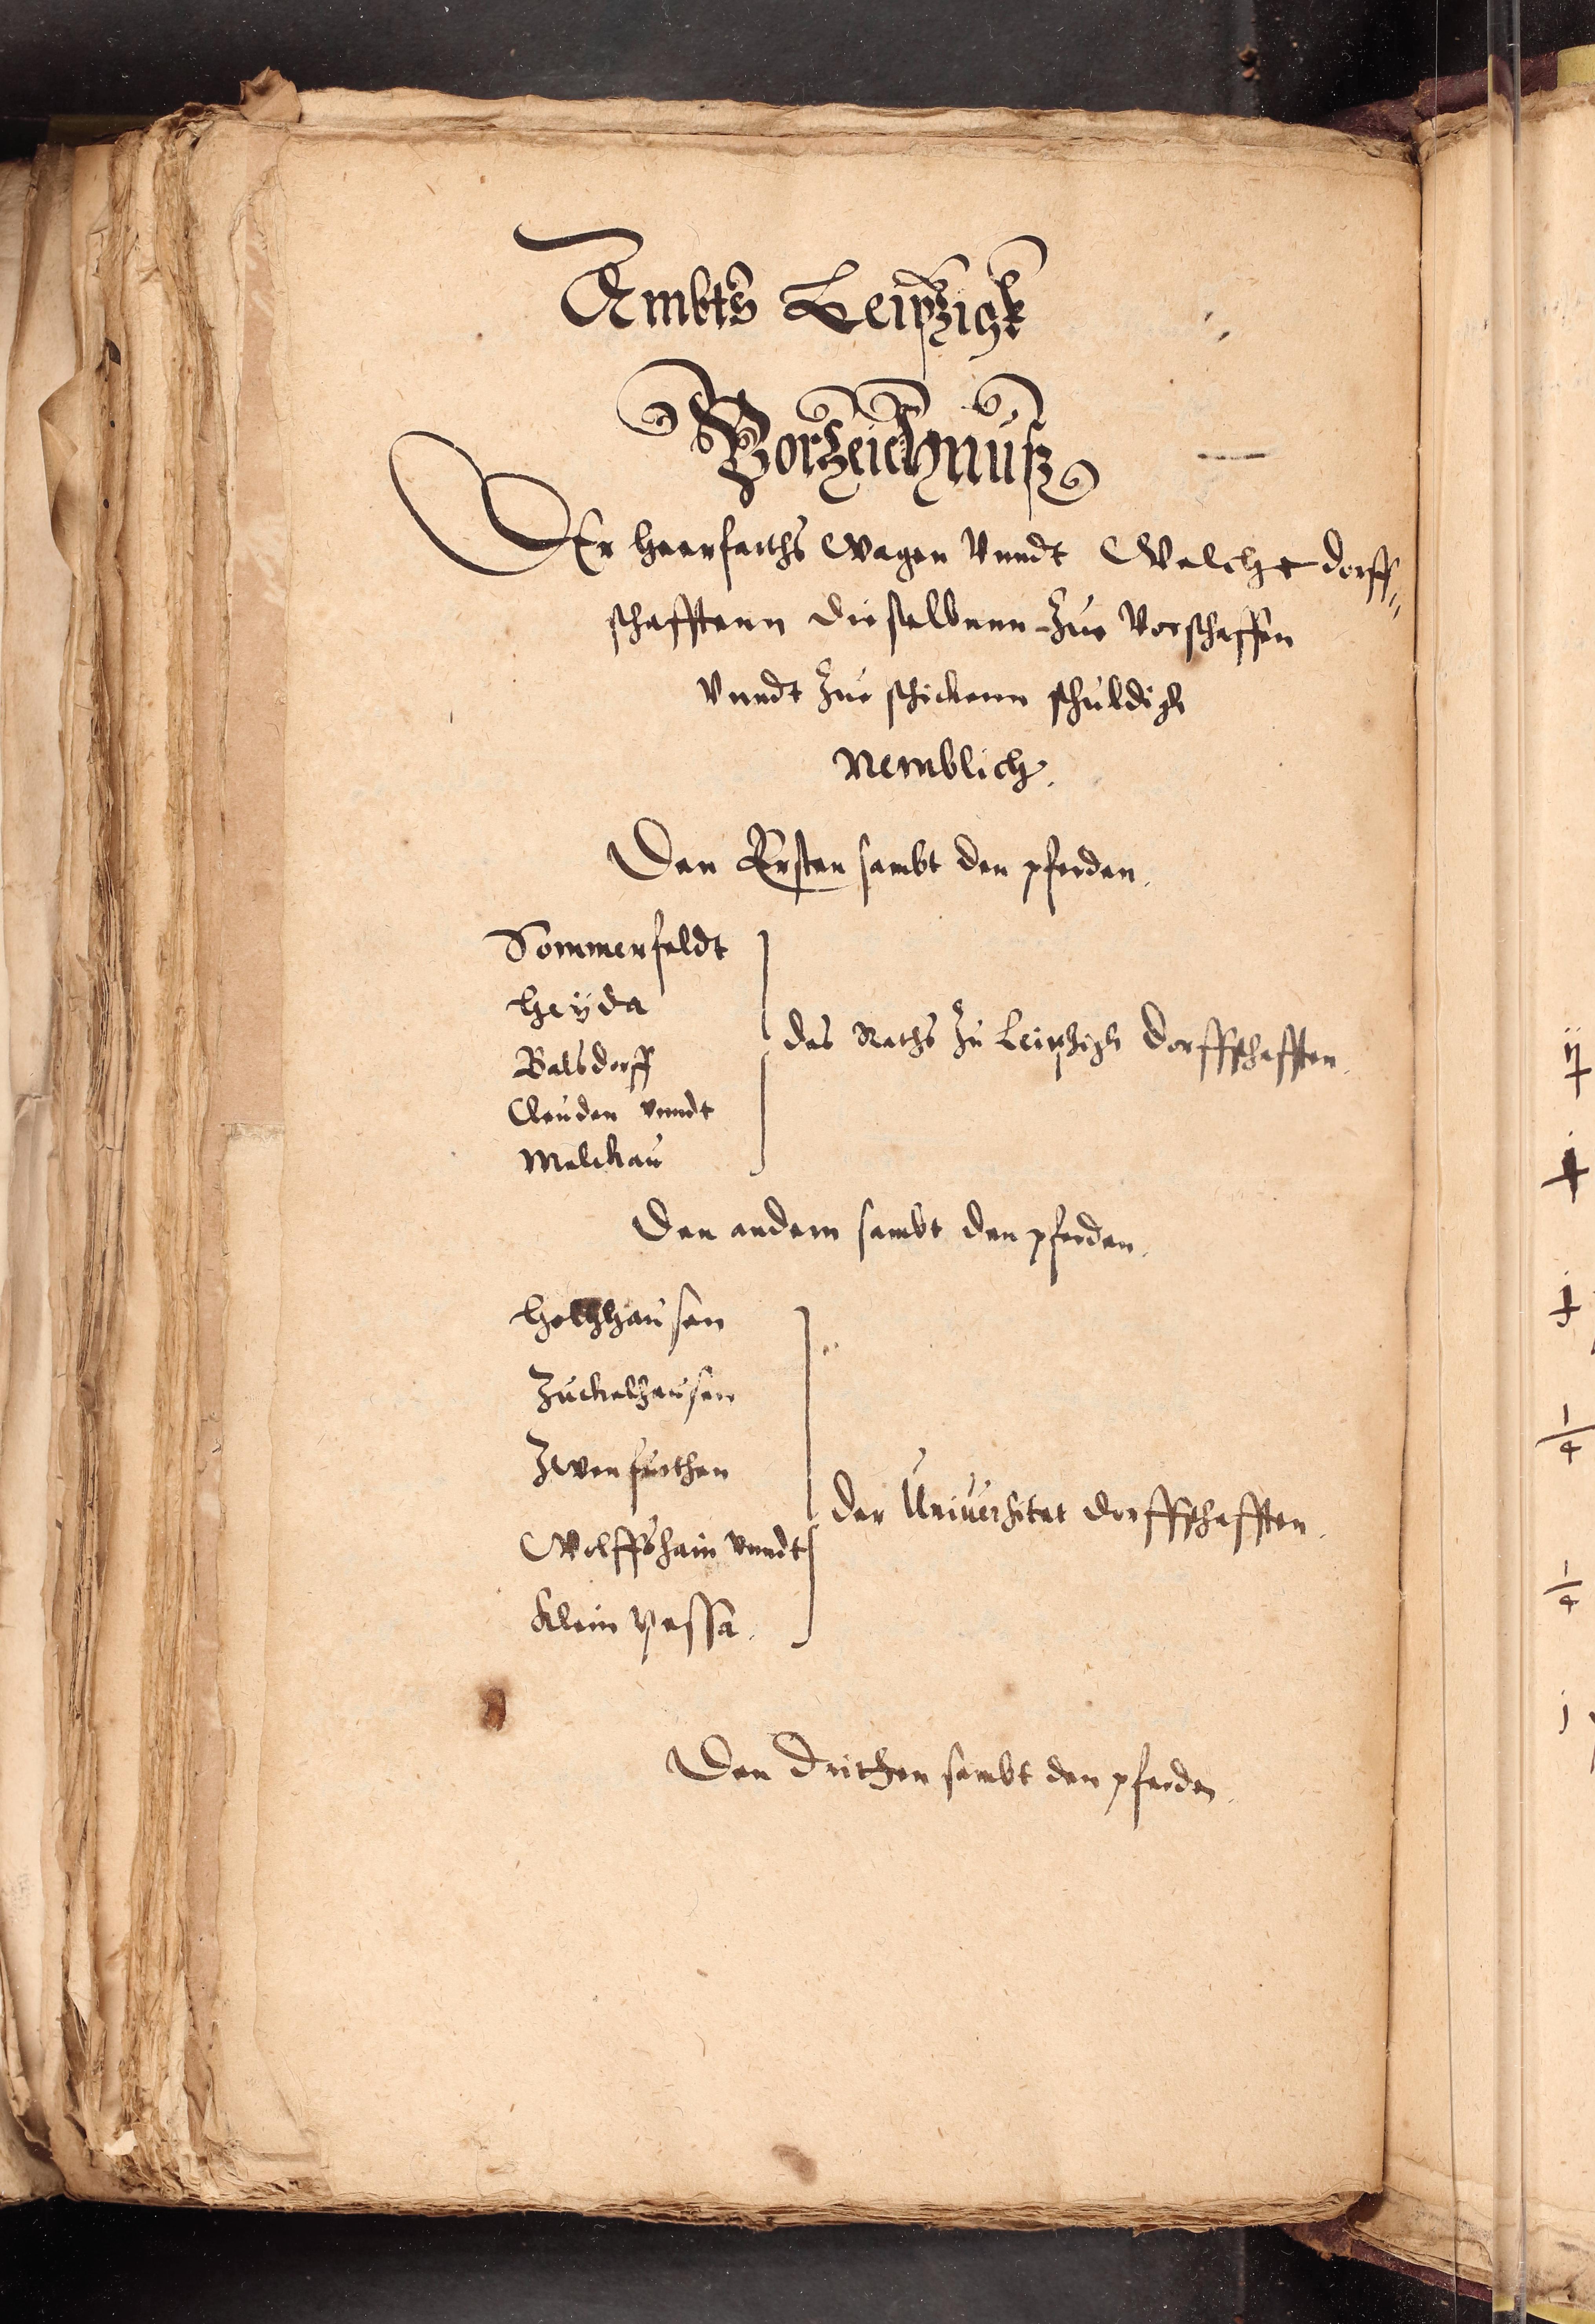 Ambts Leipzigk
Vorzeichnüß
Der Heerfarths Wagen Vnndt Welche dorff-
schafftenn dieselbenn Zue Vorschaffen
Vnndt Zue schickenn schuldigk
Nemblich.
Den Ersten sambt den pferden.
Sommerfeldt
Heÿda
Balsdorff
Cleuden vnndt
Melckau
des Raths Zu Leipzigk Dorffschafften.
Den andern sambt den pferden.
Holtzhausen
Zuckelhausen
Zwenfurthen
Wolffshain vnndt
Klein Pessa.
der Universitet dorffschafften.
Den Dritten sambt den pferden.